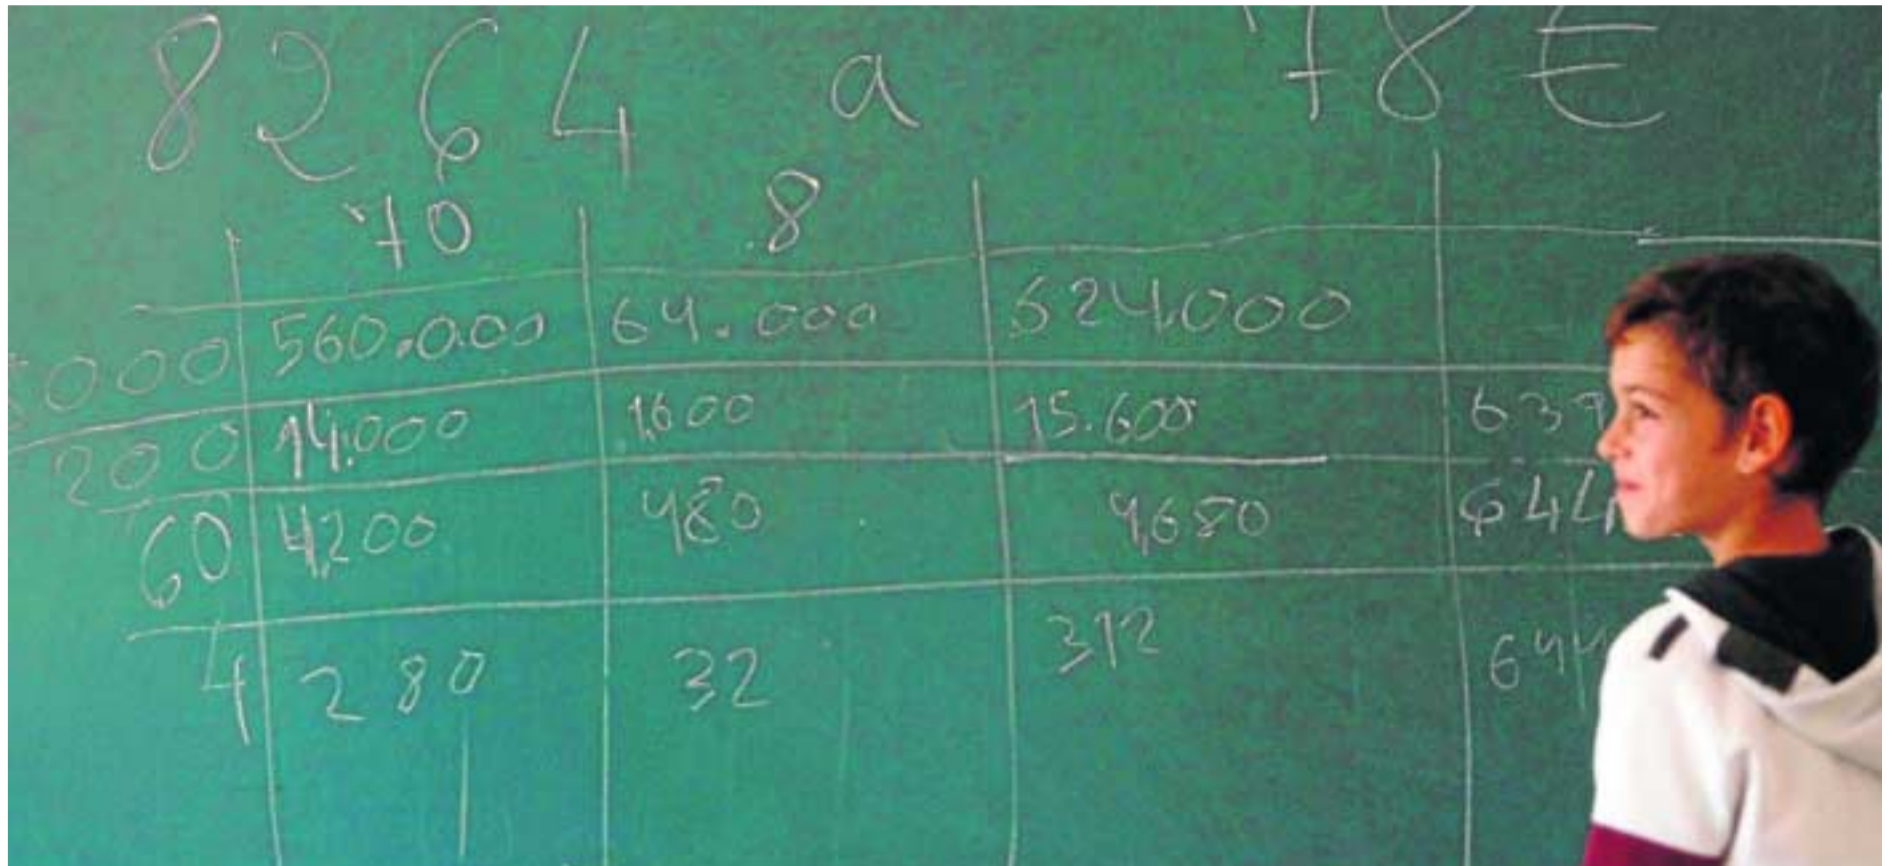 8264 a 78€
70 8
8000 560.000 64.000 624.000
200 14.000 1.600 15.600 639
60 4.200 480 4.680 644
4 280 32 312 644